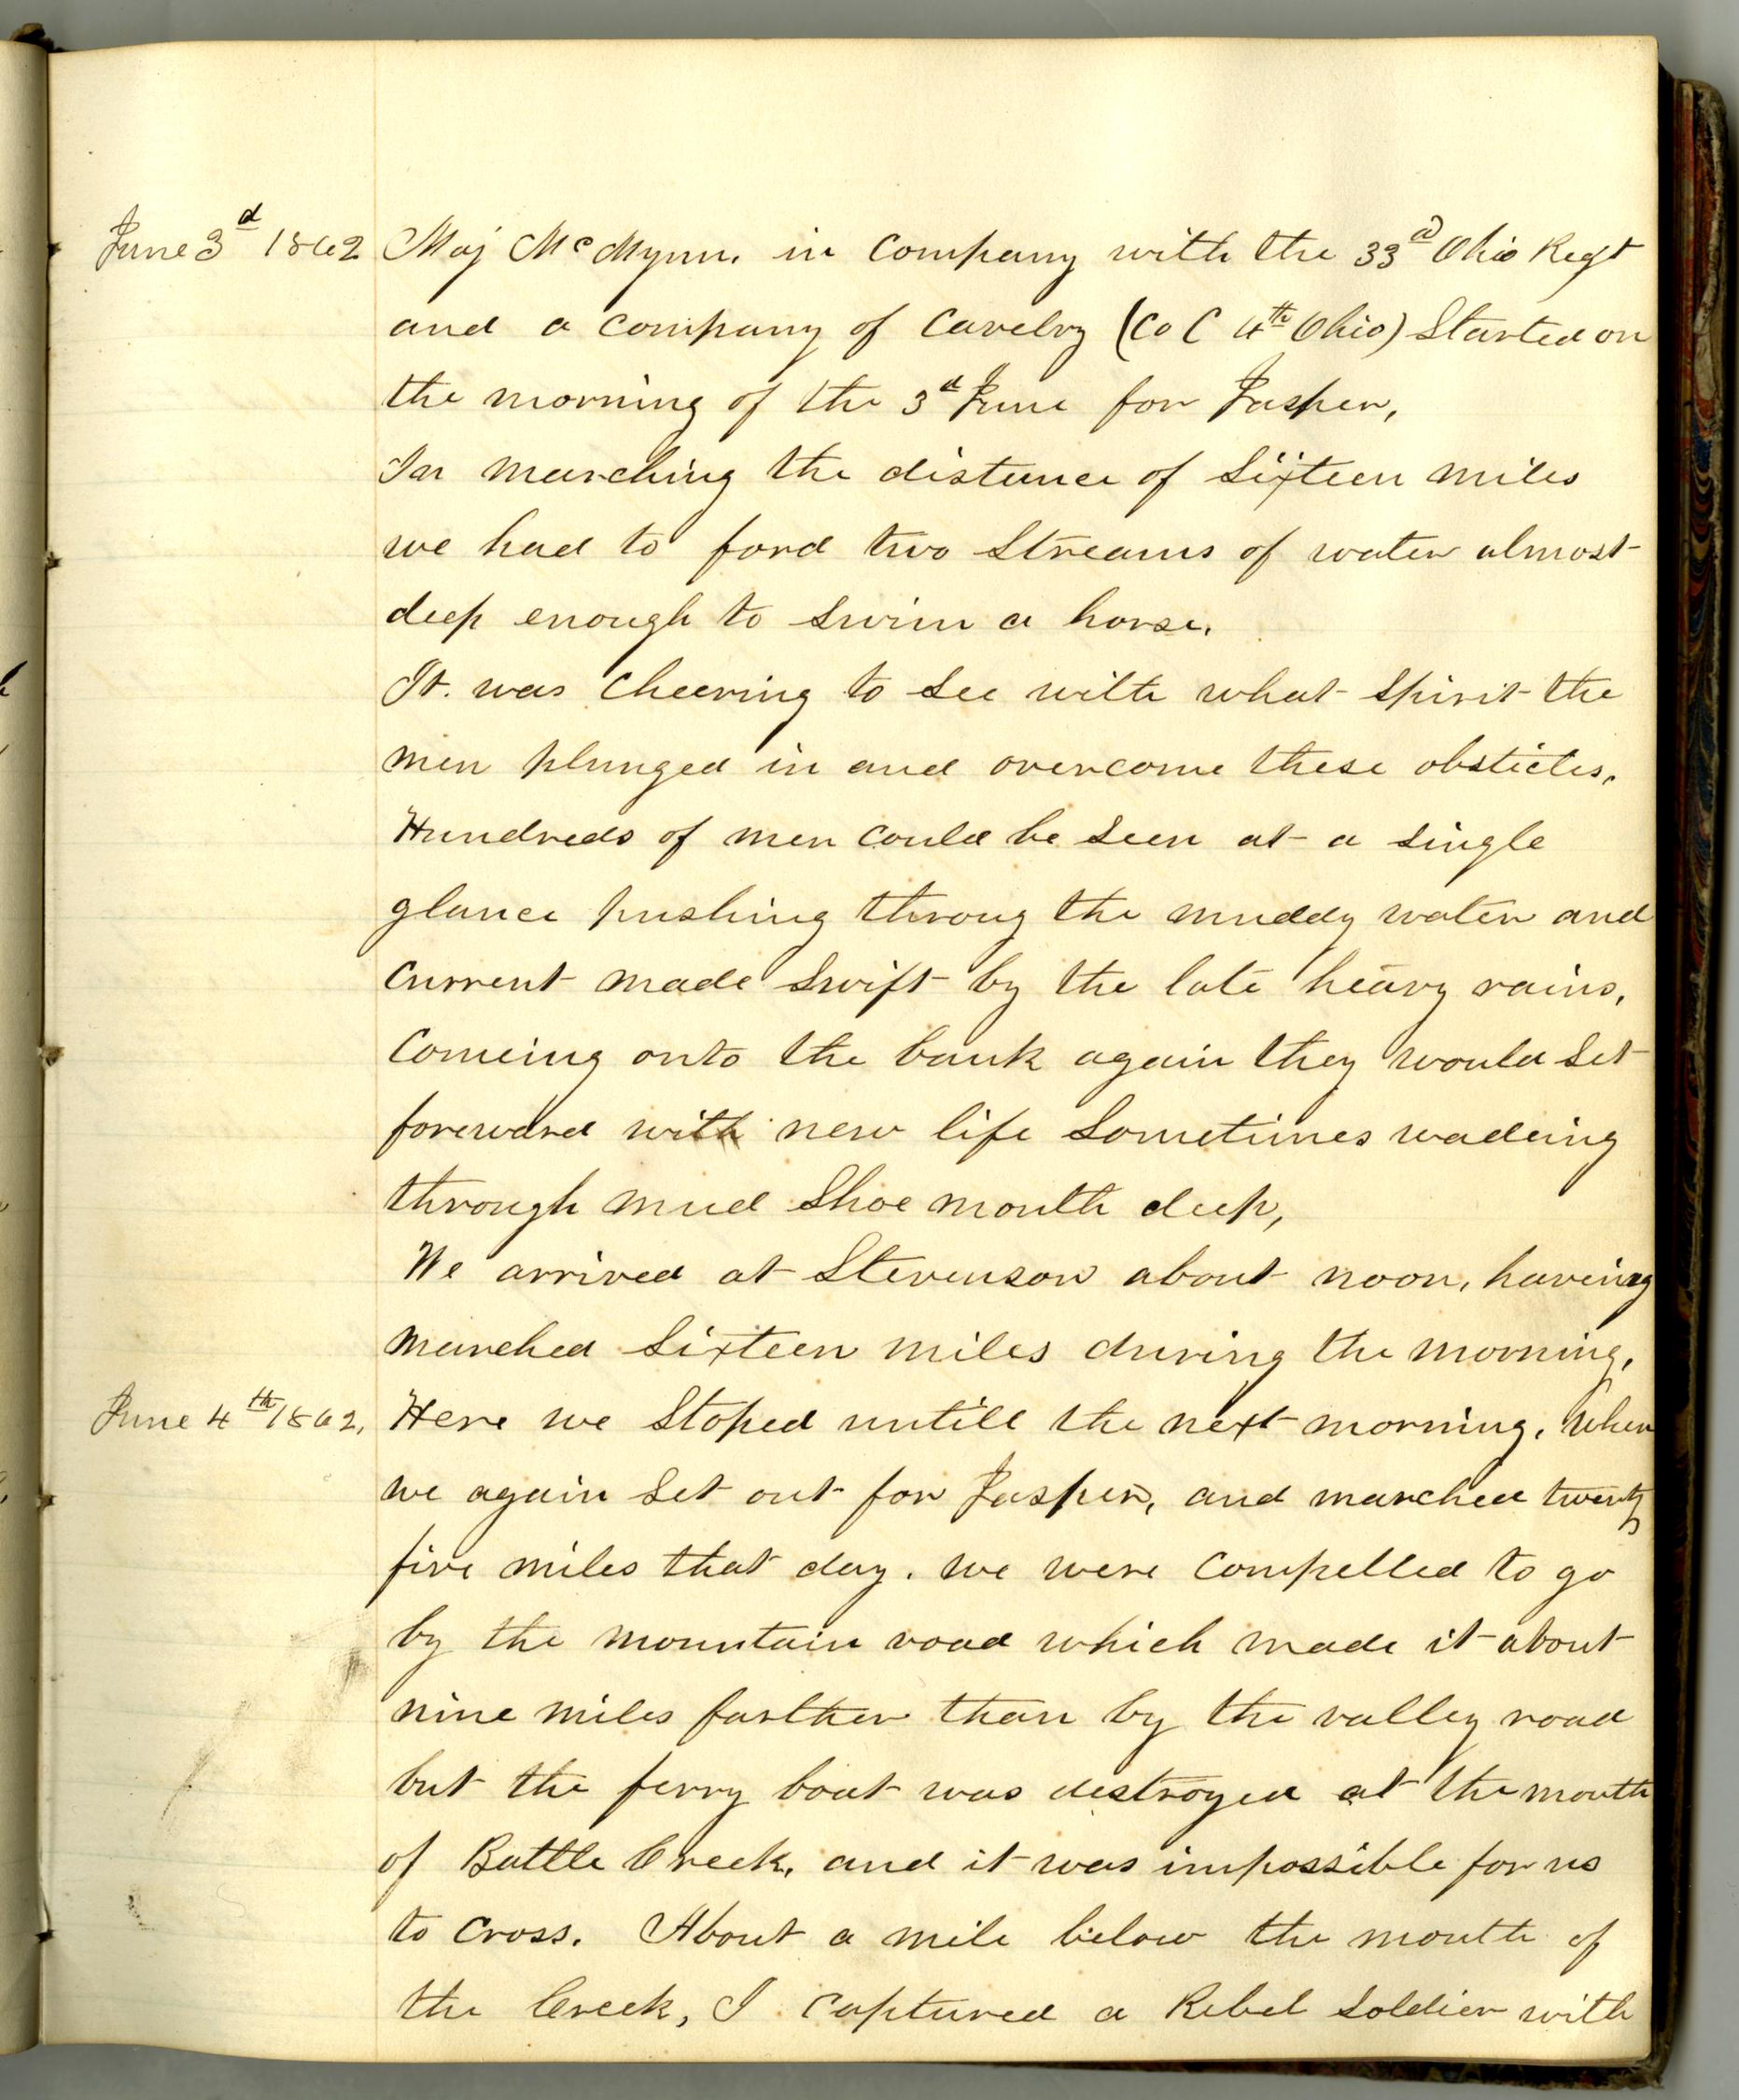 June 3d 1862 Maj McMynn. in Company with the 33d Ohio Regt
and a company of Cavelry (Co C 4th Ohio) Started on
the morning of the 3d June for Jasper,
In marching the distance of Sixteen miles
we had to ford two Streams of water almost
deep enough to Swim a horse.
It. was Cheering to See with what Spirit the
men plunged in and overcome these obsticles.
Hundreds of men Could be Seen at a Single
glance pushing throug the muddy water and
Current made Swift by the late heavy rains,
Comeing onto the bank again they would Set
foreward with new life Sometimes wadeing
through mud Shoe mouth deep,
We arrived at Stevenson about noon, haveing
marched Sixteen miles during the morning.
June 4th 1862. Here we Stoped untill the next morning, when
we again Set out for Jasper, and marched twenty
five miles that day. we were Compelled to go
by the mountain road which made it about
nine miles farther than by the valley road
but the ferry boat was destroyed at the mouth
of Battle Creek, and it was impossible for us
to Cross. About a mile below the mouth of
the Creek, I Captured a Rebel Soldier with